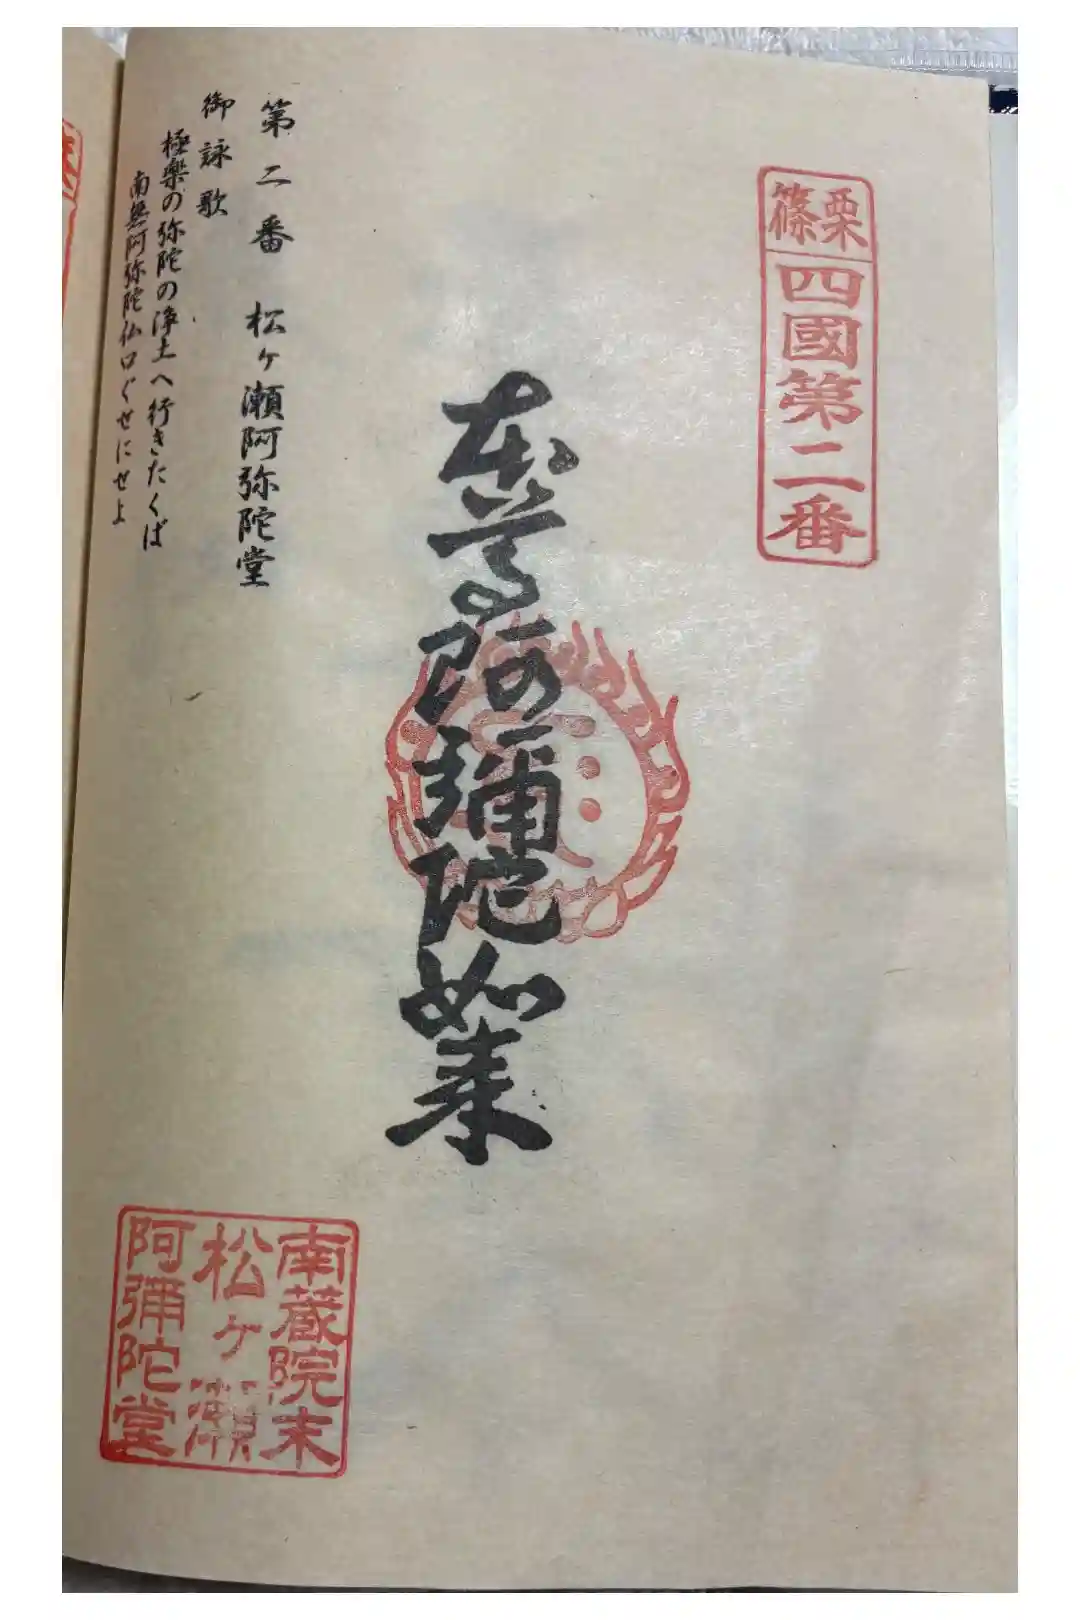 篠栗
四國第二番
本尊阿彌陀如来
第二番 松ヶ瀬阿弥陀堂
御詠歌
極楽の弥陀の浄土へ行きたくば
南無阿弥陀仏口ぐせにせよ
南蔵院末
松ヶ瀬
阿彌陀堂